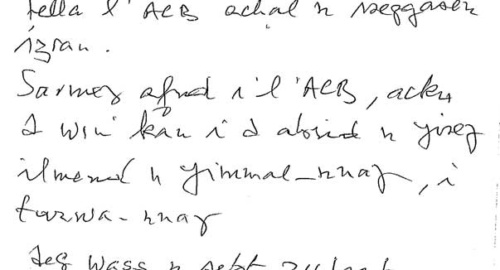 tella l'ACB achal n iseggasen
izran.
Sarmeɣ afud i l'ACB, acku
d win kan i d abrid n
ilmend n yimmal-nnaɣ, i
tarwa-nnaɣ
deg wass n